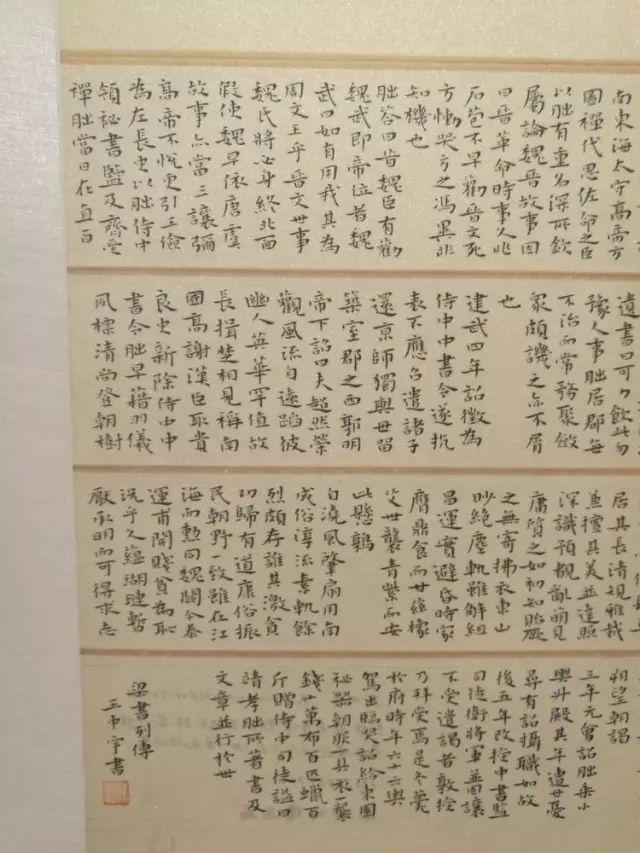 南東海太守高帝方
圖禪代思佐命之臣
以朏有重名深所欽
屬論魏晉故事因
曰晉革命時事久兆
石苞不早勸晉文死
方慟哭方之馮異非
知機也
朏答曰昔魏臣有勸
魏武即帝位者魏
武曰如有用我其為
周文王乎晉文世事
魏氏將必身終北面
假使魏早依唐虞
故事亦當三讓彌
高帝不悅更引王儉
為左長史以朏侍中
領祕書監及齊受
禪朏當日在直百
遺書曰可力飲此勿
豫人事朏居郡每
不治而常務聚斂
眾頗譏之亦不屑
也
建武四年詔徵為
侍中中書令遂抗
表不應召遣諸子
還京師獨與母留
築室郡之西郭明
帝下詔曰夫超然榮
觀風流自遠蹈彼
幽人英華罕值故
長揖楚相見稱南
國高謝漢臣取貴
良史新除侍中中
書令朏早藉羽儀
夙標清尚登朝樹
居其長清規雅裁
兼擅其美並達照
深識預覩亂萌見
庸質之如初知貽厥
之無寄拂衣東山
眇絕塵軌雖解組
昌運實避昏時家
膺鼎食而甘茲橡
艾世襲青紫而安
此懸鶉
自澆風肇扇用南
成俗淳流素軌餘
烈頗存誰其激貪
功歸有道康俗振
民朝野一致雖在江
海而勳同魏闕今泰
運甫開賤貧為恥
況乎久蘊瑚璉暫
厭承明而可得求志
朔望朝謁
三年元會詔朏乘小
輿升殿其年遭母憂
尋有詔攝職如故
後五年改授中書監
司徒衛將軍並固讓
不受遣謁者敦授
乃拜受焉是冬薨
於府時年六十六輿
駕出臨哭詔給東園
祕器朝服一具衣一襲
錢十萬布百匹蠟百
斤贈侍中司徒諡曰
靖孝朏所著書及
文章並行於世
梁書列傳
王中宇書